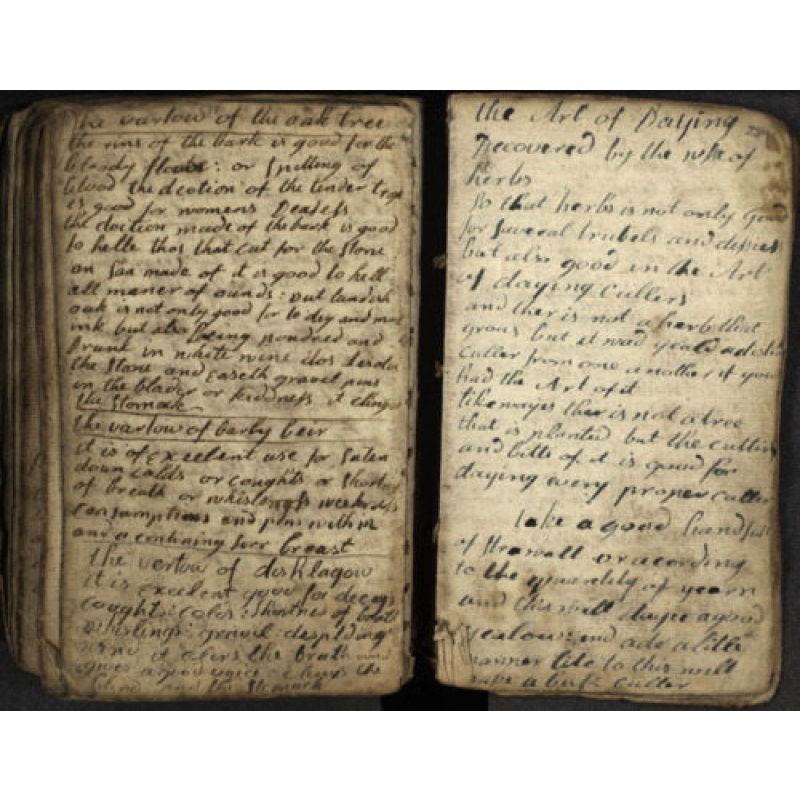 the vartow of the oak tree
the rins of the bark is good for the
bloudy floois: or Spitting of
blood the dcotion of the tender
is good for womens Deaess
the doction made of the bark is good
to helle thos that cut for the Stone
an Saa made of it is good to hell
all maner of ounds: out landish
oak is not only good for to dey and
ink but also being poudred and
Drunk in white wine dos
the Stone and easeth gravel pins
in the blader or kidness it
the Stomak
the vartow of barby beir
it is of excelent use for
down colds or coughts or Shortnes
of breath or whislengs
consumptions and pins with in
and a sier breast
the vertow of disklagow
it is excelent good for
coughts: colds: shortnes of breath
whislings: geneuel
wind it clers the brath
gives a good voice the
and the Stomack
the Art of Daying 28
Decovered by the of
herbs
so that herbs is not only Good
for Saveral trubels and
but also good in the Art
of daying cullers
and ther is not a herb that
grous but it will yeald a
culler from one another if you
had the Art of it
likewayes ther is not a tree
that is planted but the
and bitts of it is good for
daying every proper culler
take a good handful
of or according
to the quantity of yearn
and this will dayee a good
yealow: and ade a litle
to this will
make a culler